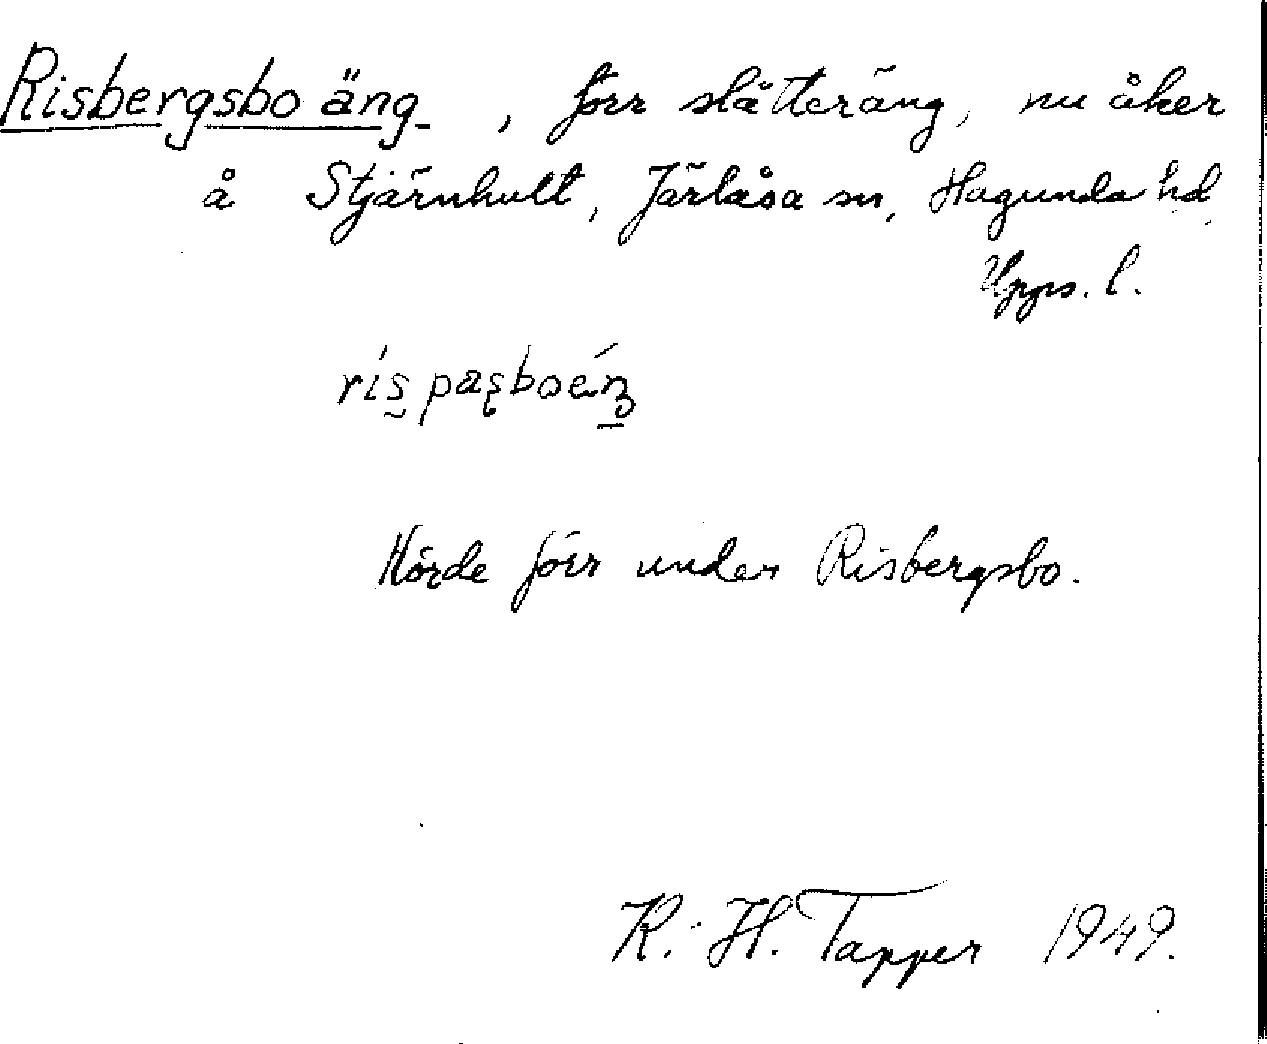 Risbergsbo äng, förr slåtteräng, nu åker
å Stjärnhult, Järlåsa sn, Hagunda hd
Upps. l.
Hörde förr under Risbergsbo.
K. H. Tapper 1949.